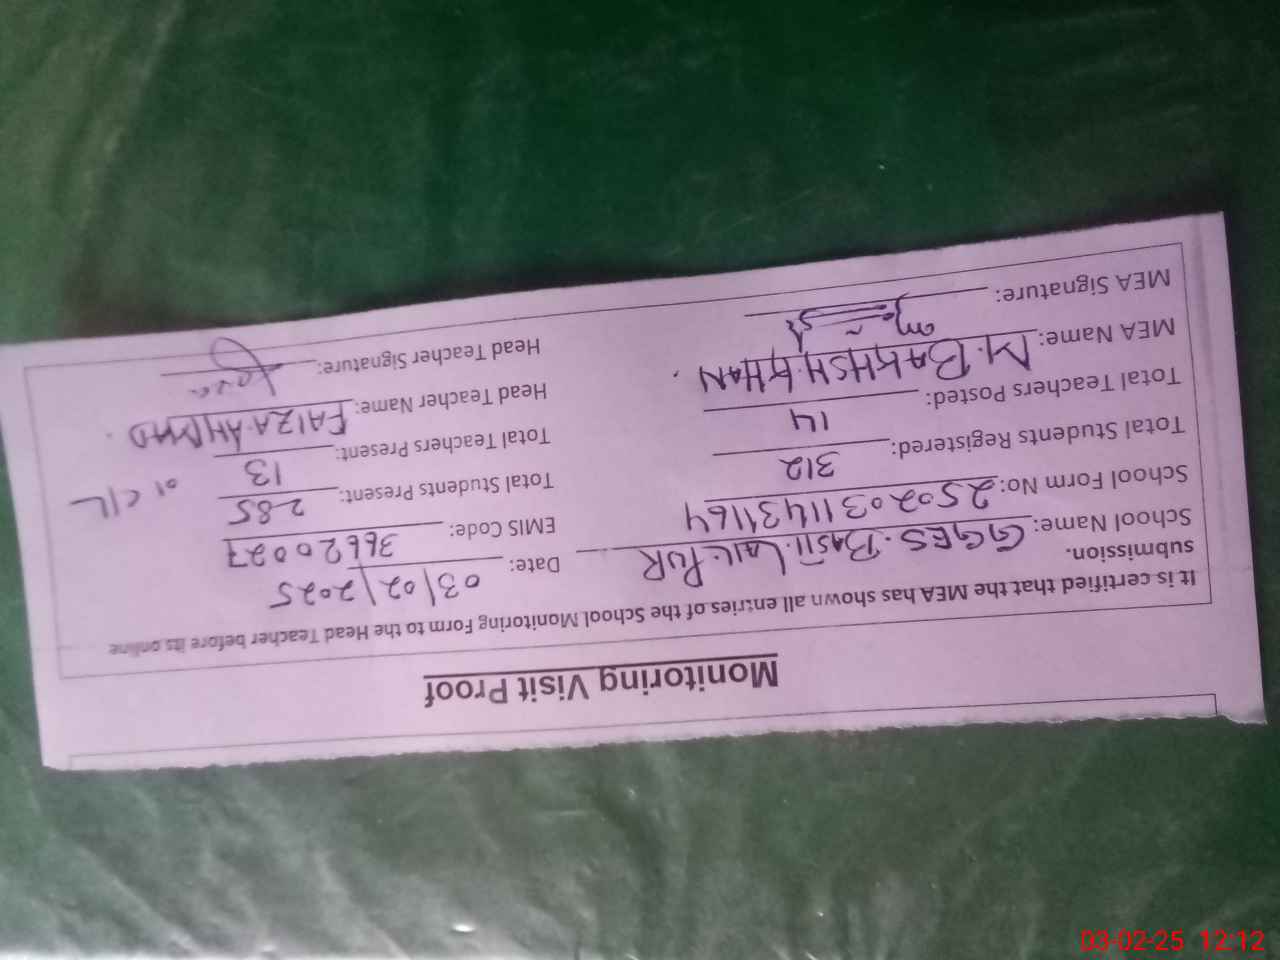 Monitoring Visit Proof
It is certified that the MEA has shown all entries of the School Monitoring Form to the Head Teacher before its online
submission.
Date: 03/02/2025
School Name: GGES. BASTI. LAIL PUR
EMIS Code: 36620027
School Form No: 25020311431164
Total Students Present: 285
Total Students Registered: 312
Total Teachers Present: 13 01 C/L
Total Teachers Posted: 14
Head Teacher Name: FAIZA AHMAD.
MEA Name: M. BAKHSH KHAN.
Head Teacher Signature:
MEA Signature:
03-02-25 12:12